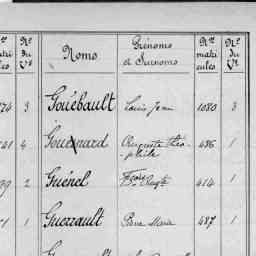 Nos matri cules
No du Vt
Noms
Prénoms et Surnoms
Nos matri cules
No du Vt
74 3 Gouëbault Louis Jean 1080 3
41 4 Gouesnard Auguste théo-
phile 436 1
99 2 Guénel Fçois Augte 414 1
1 1 Guerrault Pierre Marie 487 1